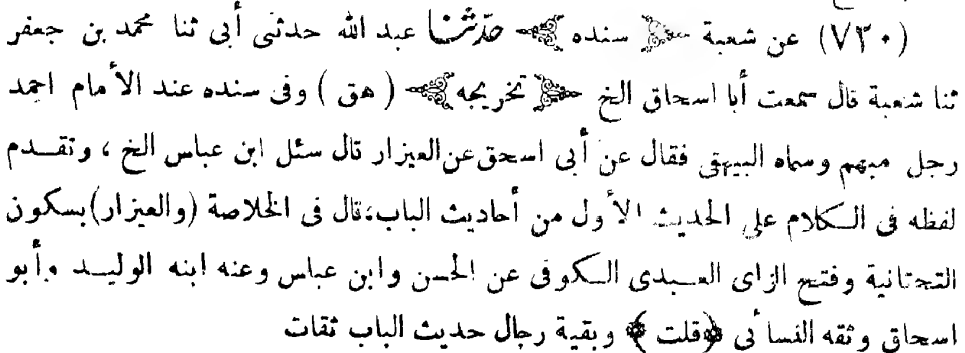 (٧٣٠) عن شعبة ﴿ سنده ﴾ حدّثنا عبد الله حدثنى أبى ثنا محمد بن جعفر
ثنا شعبة قال سمعت أبا اسحاق الخ ﴿ تخريجه ﴾ ( هق ) وفى سنده عند الأمام احمد
رجل مبهم وسماه البيهقى فقال عن أبى اسحق عن العيزار قال سئل ابن عباس الخ ، وتقدم
لفظه فى الكلام على الحديث الأول من أحاديث الباب،قال فى الخلاصة (والعيزار)بسكون
التحتانية وفتح الزاى العبدى الكوفى عن الحسن وابن عباس وعنه ابنه الوليد وأبو
اسحاق وثقه النسائى ﴿قلت ﴾ وبقية رجال حديث الباب ثقات